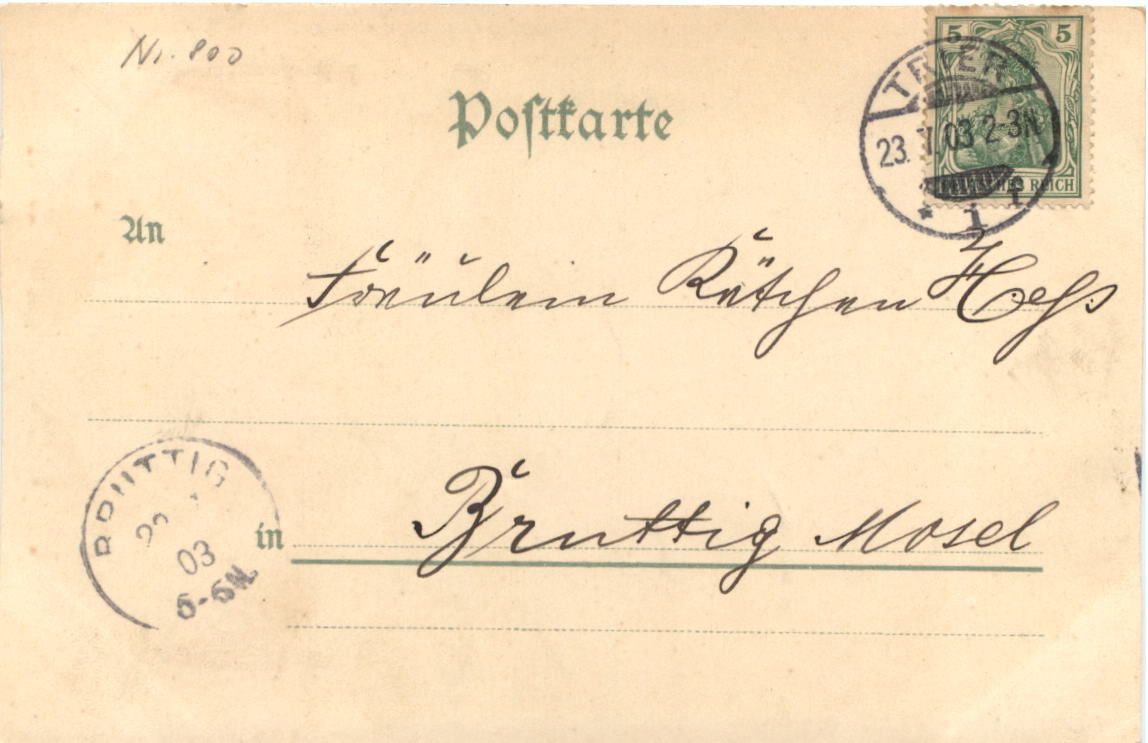 Nr. 800
5 5
DEUTSCHES REICH
TRIER
23. V. 03 2-3N
* 1 r
Postkarte
An
Fräulein Kätchen Hess
BRUTTIG
03
5-6N.
in
Bruttig Mosel